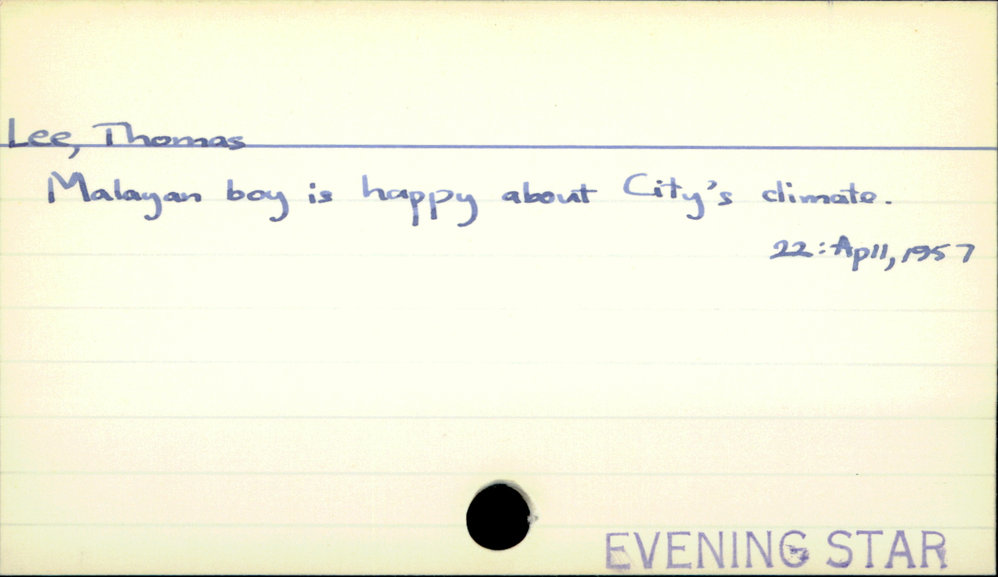 Lee, Thomas
Malayan boy is happy about City's climate.
22: Apll, 1957
EVENING STAR